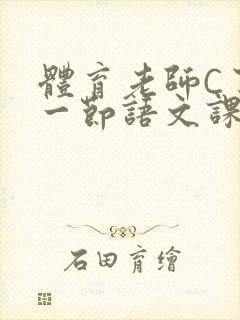 體育老師C了
一節語文課
石田育繪